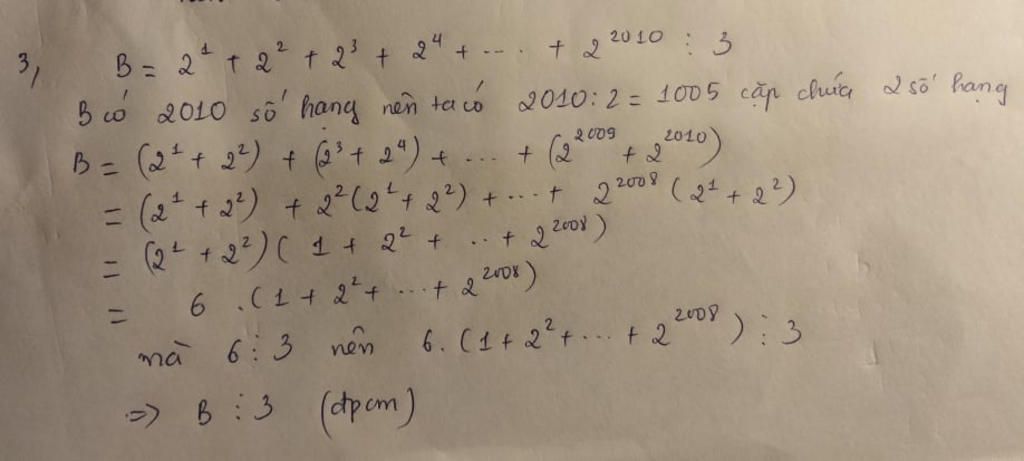 3, B = 2¹ + 2² + 2³ + 2⁴ + ... + 2²⁰¹⁰ ⋮ 3
B có 2010 số hạng nên ta có 2010 : 2 = 1005 cặp chứa 2 số hạng
B = (2¹ + 2²) + (2³ + 2⁴) + ... + (2²⁰⁰⁹ + 2²⁰¹⁰)
= (2¹ + 2²) + 2²(2¹ + 2²) + ... + 2²⁰⁰⁸ (2¹ + 2²)
= (2¹ + 2²) (1 + 2² + ... + 2²⁰⁰⁸)
= 6 . (1 + 2² + ... + 2²⁰⁰⁸)
mà 6 ⋮ 3 nên 6 . (1 + 2² + ... + 2²⁰⁰⁸) ⋮ 3
=> B ⋮ 3 (đpcm)